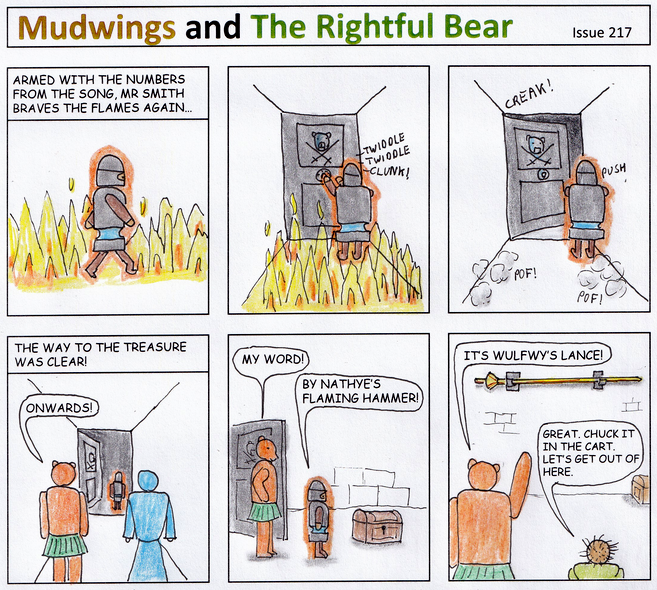 Mudwings and The Rightful Bear
Issue 217
ARMED WITH THE NUMBERS
FROM THE SONG, MR SMITH
BRAVES THE FLAMES AGAIN...
TWIDDLE
TWIDDLE
CLUNK!
CREAK!
PUSH
POF!
POF!
THE WAY TO THE TREASURE
WAS CLEAR!
ONWARDS!
MY WORD!
BY NATHYE'S
FLAMING HAMMER!
IT'S WULFWY'S LANCE!
GREAT. CHUCK IT
IN THE CART.
LET'S GET OUT OF
HERE.